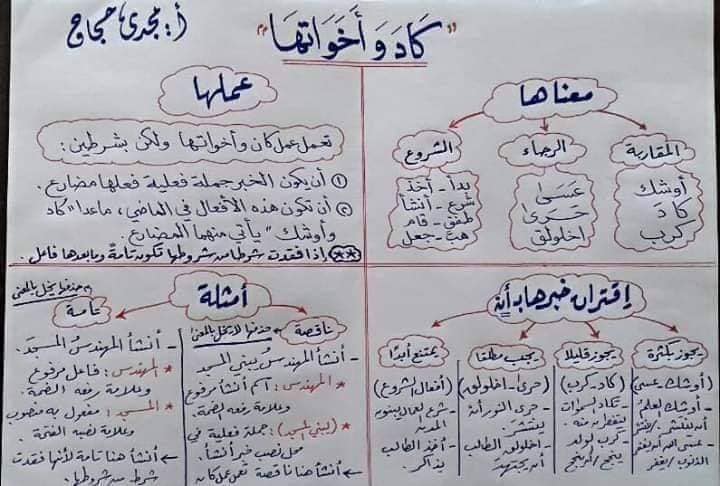 "كَادَ وَ أَخَوَاتُهَا"
أ: مجدى حجاج
معناها
المقاربة
أوشك
كاد
كرب
الرجاء
عَسَى
حَرَى
اخلولق
الشروع
بدأ - أخذ
شرع - أنشأ
طفق - قام
هبّ - جعل
عملها
تعمل عمل كان وأخواتها ولكن بشرطين :
① أن يكون الخبر جملة فعلية فعلها مضارع .
② أن تكون هذه الأفعال في الماضي ، ماعدا "كاد
وأوشك" يأتي منهما المضارع .
** إذا فقدت شرطا من شروطها تكون تامة وما بعدها فاعل .
اقتران خبرها بـ أن
يجوز بكثرة
(أوشك - عسى)
- أوشك العلم
أن ينتشر / ينتشر
- عسى الله أن يغفر
الذنوب / يغفر
يجوز قليلا
(كاد - كرب)
- تكاد السموات
يتفطرن منه .
- كرب الولد
ينجح / أن ينجح
يجب مطلقا
(حرى - اخلولق)
- حرى النور أن
ينتشر .
- اخلولق الطالب
أن يجتهد
يمتنع أبدًا
(أفعال الشروع)
- شرع العمال يبنون
- أخذ الطالب
يذاكر .
أمثلة
ناقصة
حذفها لا يخل بالمعنى
- أنشأ المهندسُ يبني المسجد
* المهندس : اسم أنشأ مرفوع
وعلامة رفعه الضمة .
* (يبني المسجد) : جملة فعلية في
محل نصب خبر أنشأ .
← أنشأ هنا ناقصة تعمل عمل كان
حذفها يخل بالمعنى
تامة
- أنشأ المهندسُ المسجدَ .
* المهندس : فاعل مرفوع
وعلامة رفعه الضمة .
* المسجد : مفعول به منصوب
وعلامة نصبه الفتحة .
← أنشأ هنا تامة لأنها فقدت
شرط من شروطها .